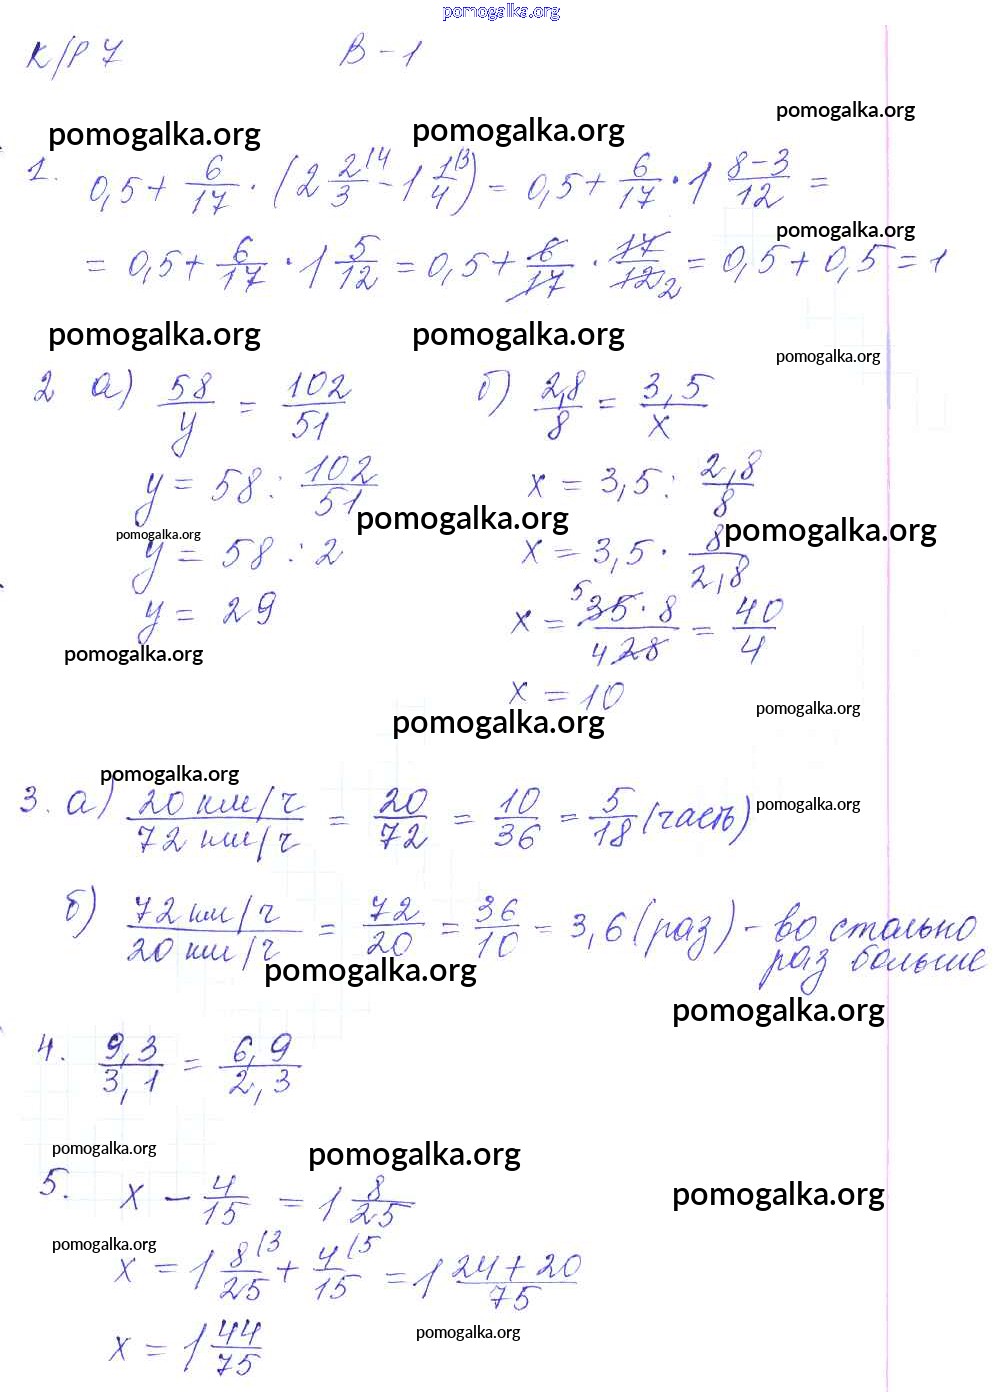 pomogalka.org
К/Р 7 В-1
pomogalka.org pomogalka.org pomogalka.org
1. 0,5 + 6/17 · (2 2/3 |4 - 1 1/4 |3) = 0,5 + 6/17 · 1 (8-3)/12 =
pomogalka.org
= 0,5 + 6/17 · 1 5/12 = 0,5 + 6/17 · 17/12 2 = 0,5 + 0,5 = 1
pomogalka.org pomogalka.org pomogalka.org
2 а) 58/y = 102/51 б) 2,8/8 = 3,5/x
y = 58 : 102/51 x = 3,5 : 2,8/8
pomogalka.org pomogalka.org pomogalka.org
y = 58 : 2 x = 3,5 · 8/2,8
y = 29 x = 5 35 · 8/4 28 = 40/4
pomogalka.org
x = 10
pomogalka.org pomogalka.org
pomogalka.org
3. а) 20 км/ч/72 км/ч = 20/72 = 10/36 = 5/18 (часть)
pomogalka.org
б) 72 км/ч/20 км/ч = 72/20 = 36/10 = 3,6 (раз) - во столько
раз больше
pomogalka.org
pomogalka.org
4. 9,3/3,1 = 6,9/2,3
pomogalka.org pomogalka.org
5. x - 4/15 = 1 8/25
pomogalka.org
pomogalka.org
x = 1 8/25 |3 + 4/15 |5 = 1 (24+20)/75
pomogalka.org
x = 1 44/75